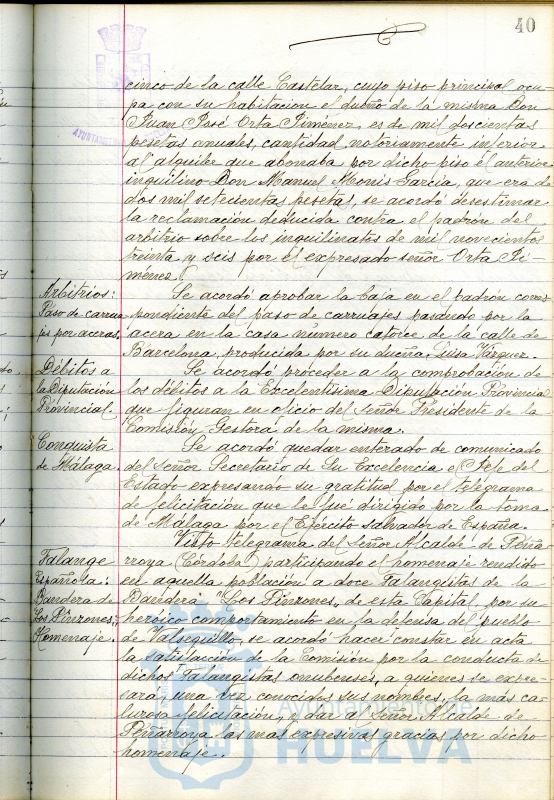 40
cinco de la calle Castelar, cuyo piso principal ocu-
pa con su habitación el dueño de la misma Don
Juan José Orta Jiménez, es de mil doscientas
pesetas anuales, cantidad notoriamente inferior
al alquiler que abonaba por dicho piso el anterior
inquilino Don Manuel Monis García, que era de
dos mil setecientas pesetas, se acordó desestimar
la reclamación deducida contra el padrón del
arbitrio sobre los inquilinatos de mil novecientos
treinta y seis por el expresado señor Orta Ji-
ménez.
Arbitrios:
Paso de carrua
jes por aceras.
Se acordó aprobar la baja en el padrón corres
pondiente del paso de carruajes parando por la
acera en la casa número catorce de la calle de
Barcelona, producida por su dueña Luisa Vázquez.
Débitos a
la Diputación
Provincial.
Se acordó proceder a la comprobación de
los débitos a la Excelentísima Diputación Provincial
que figuran en oficio del Señor Presidente de la
Comisión Gestora de la misma.
Conquista
de Málaga.
Se acordó quedar enterado de comunicado
del Señor Secretario de Su Excelencia el Jefe del
Estado expresando su gratitud por el telegrama
de felicitación que le fué dirigido por la toma
de Málaga por el Ejército salvador de España.
Falange
Española:
Bandera de
Los Pinzones;
Homenaje.
Visto telegrama del Señor Alcalde de Peña
rroya (Córdoba) participando el homenaje rendido
en aquella población a doce Falangistas de la
Bandera "Los Pinzones, de esta Capital por su
heroico comportamiento en la defensa del pueblo
de Valsequillo, se acordó hacer constar en acta
la satisfacción de la Comisión por la conducta de
dichos Falangistas onubenses, a quienes se expre-
sará, una vez conocidos sus nombres, la más ca-
lurosa felicitación, y dar al Señor Alcalde de
Peñarroya las más expresivas gracias por dicho
homenaje.
Ayuntamiento de
HUELVA